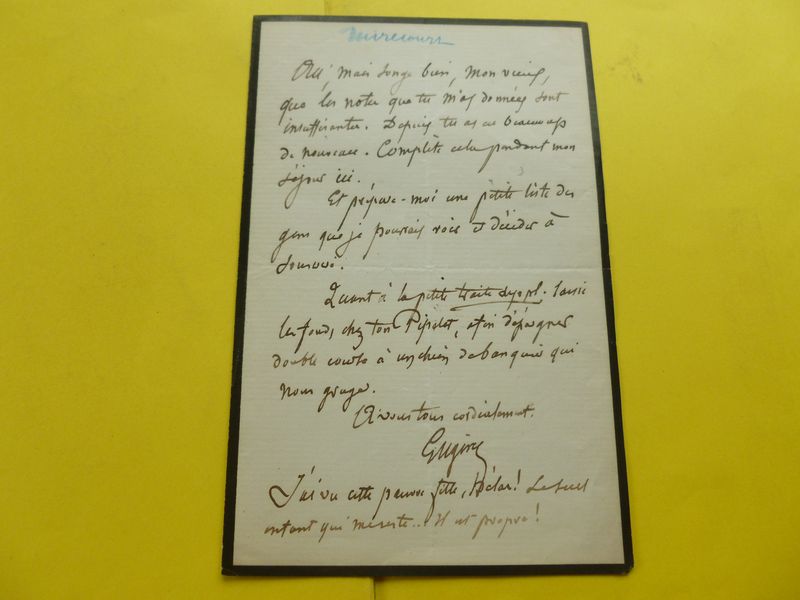 Mirecourt
mais songe bien, mon vieux,
que les notes que tu m'as données sont
insuffisantes. Depuis tu as eu beaucoup
de nouveau. Complète cela pendant mon
séjour ici.
Et prépare-moi une petite liste des
gens que je pourrais voir et décider à
souscrire.
Quant à la petite traite laisse
les fonds, chez ton Pipelet, afin d'épargner
double course à un chien de banquier qui
nous gruge.
A vous tous cordialement.
Eugène
J'ai vu cette pauvre fille, hélas! Le seul
enfant qui me reste... Il est propre!